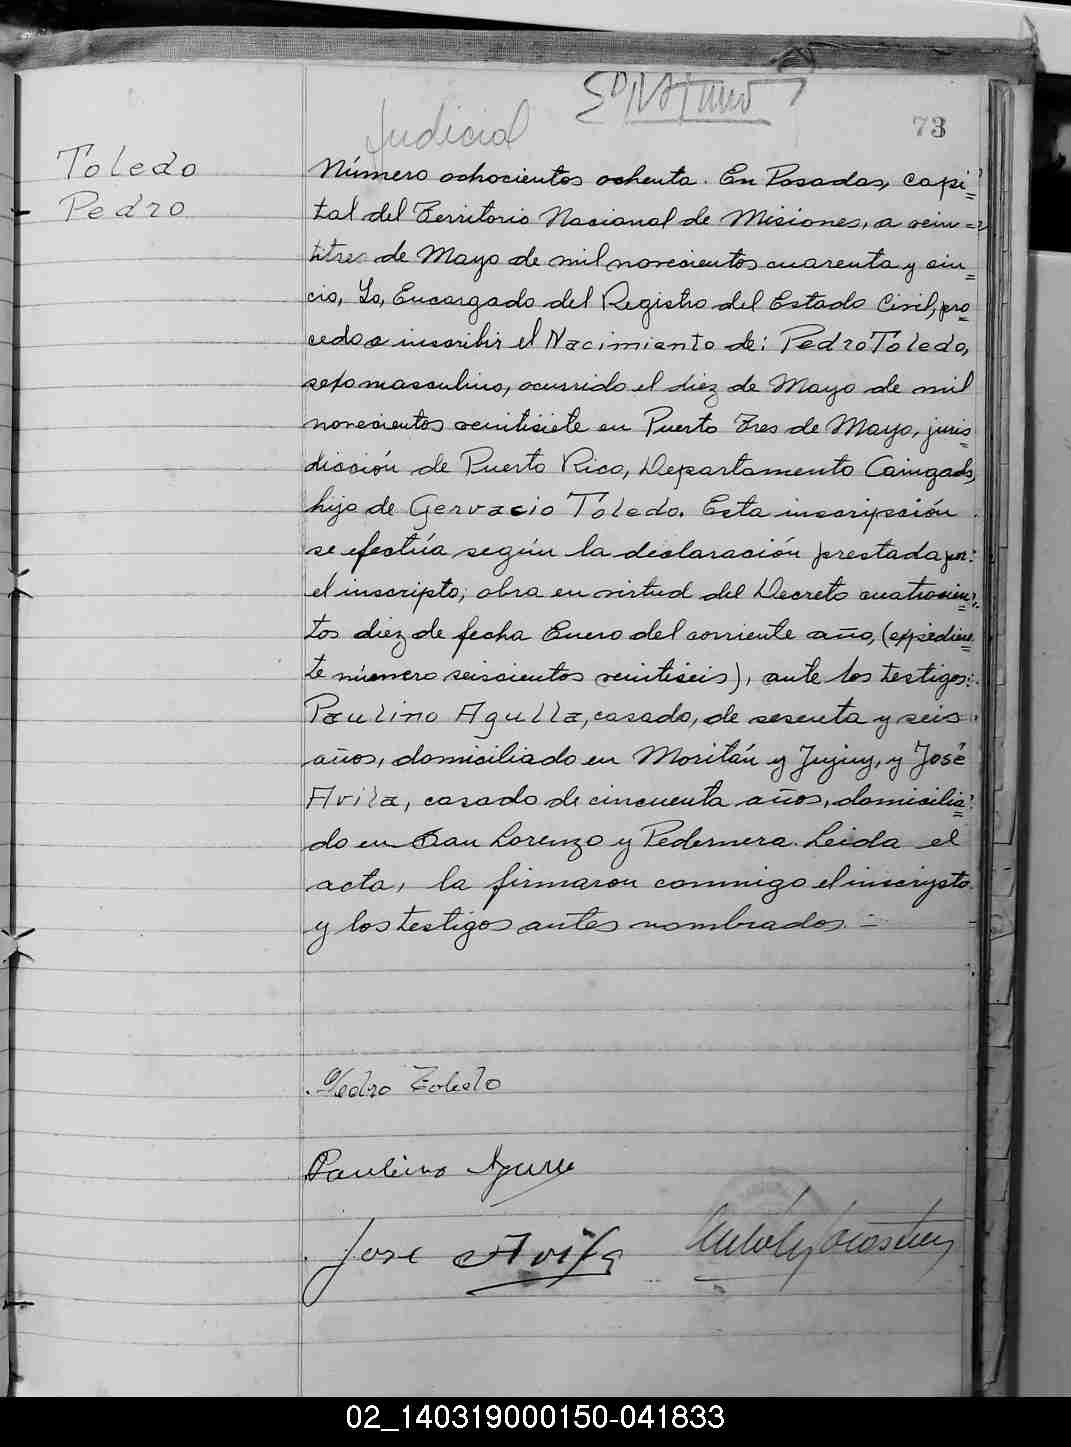 73
Judicial
Toledo
Pedro
Número ochocientos ochenta. En Posadas, Capi=
tal del Territorio Nacional de Misiones, a vein=
titres de Mayo de mil novecientos cuarenta y cin=
cio, Yo, Encargado del Registro del Estado Civil, pro=
cedo a inscribir el Nacimiento de: Pedro Toledo,
sexo masculino, ocurrido el diez de Mayo de mil
novecientos veintisiete en Puerto Tres de Mayo, juris=
dicción de Puerto Rico, Departamento Cainguás,
hijo de Gervacio Toledo. Esta inscripción
se efectúa según la declaración prestada por
el inscripto; obra en virtud del Decreto cuatrocien=
tos diez de fecha Enero del corriente año, (expedien=
te número seiscientos veintiseis), ante los testigos:
Paulino Agulla, casado, de sesenta y seis
años, domiciliado en Moritán y Jujuy, y José
Avila, casado de cincuenta años, domicilia=
do en San Lorenzo y Pedernera. Leida el
acta, la firmaron conmigo el inscripto
y los testigos antes nombrados. =
Pedro Toledo
Paulino
Jose Avila
02_140319000150-041833